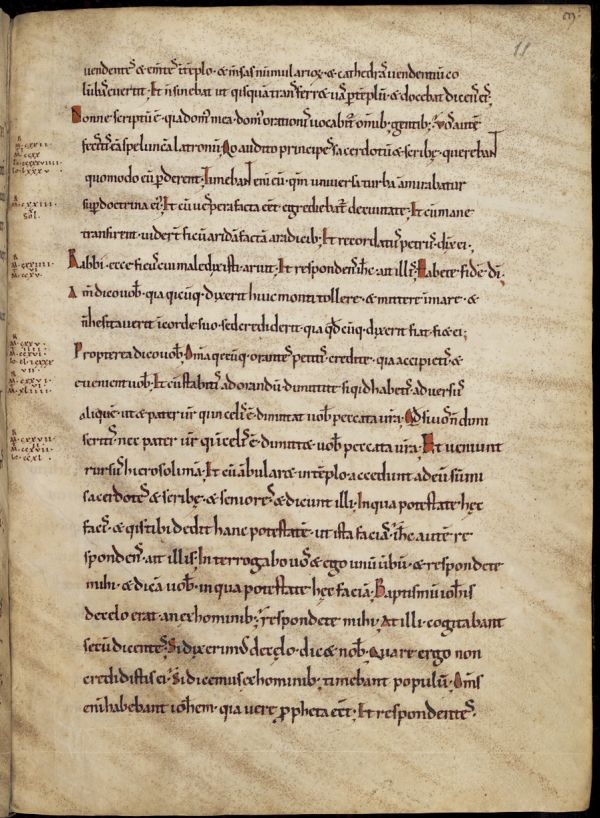 11
vendentes & em̄tes ī tēplo · & m̄sas nūmularioꝝ · & cathedras vendentiū co
lūbas evertit · Et n̄ sinebat ut q̇squā trans ferr& vas p̱ tēplū · & docebat dicens eis ·
Nonne scriptū ē · quia dom͛ mea · dom͛ orationis vocabit͛ omīb; gentib; · vos autē
fecistis eā speluncā latronū · Quo audito principes sacerdotū & scribę · querebant
quomodo eū p̱derent · Timebant enī eū · qm̄ universa turba āmirabatur
sup̱ doctrina ei͛ · Et cū vesp̱era facta eēt egrediebat͛ de civitate · Et cū mane
transirent · viderт ficū aridā factā a radicib; · Et recordatus petrus · dix̄ ei ·
Rabbi · ecce ficus cui maledixisti · aruit · Et respondens ihc̄ · ait illis · Habete fidē dī ·
Am̄ dico vob̄ · quia quicūq; dixerit huic monti tollere · & mittere ī mare · &
n̄ hesitaverit ī corde suo · sed crediderit · quia qdcūq; dixerit fiat · fi& ei ·
Propterea dico vob̄ · Om̄ia quecūq; orantes petitis · credite · quia accipietis · &
evenient vob̄ · Et cū stabitis ad orandū · dimittite si qid habetis adversus
aliquē · ut & pater vr̄ qui in celis ē · dimittat vob̄ peccata vrā · Qdsi vos n̄ dimi
seritis · nec pater vr̄ qui ī celis ē · dimitt& vob̄ peccata vrā · Et veniunt
rursus hierosolimā · Et cū ābular& in tēplo · accedunt ad eū sūmi
sacerdotes & scribę · & seniores · & dicunt illi · In qua potestate hęc
facis · & quis tibi dedit hanc potestatē · ut ista facias · ihc̄ autē re
spondens · ait illis · Interrogabo vos & ego unū v̄bū · & respondete
mihi · & dicā vob̄ · in qua potestate hęc faciā · Baptismū ioh̄is
de cęlo erat · an ex hominib; · respondete mihi · At illi cogitabant
secū dicentes · Si dixerim͛ de cęlo · dic& nob̄ · Quare ergo non
credidistis ei · Si dicemus ex hominib; · timebant populū · Om̄s
enī habebant ioh̄em · quia vere p̱pheta eēt · Et respondentes ·